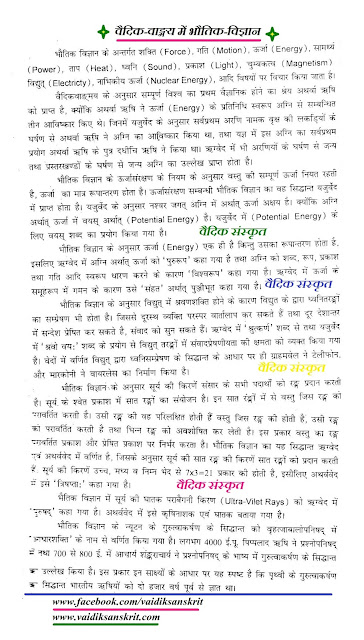 वैदिक-वाङ्मय में भौतिक-विज्ञान
भौतिक विज्ञान के अन्तर्गत शक्ति (Force), गति (Motion), ऊर्जा (Energy), सामर्थ्य
(Power), ताप (Heat), ध्वनि (Sound), प्रकाश (Light), चुम्बकत्व (Magnetism)
विद्युत् (Electricty), नाभिकीय ऊर्जा (Nuclear Energy), आदि विषयों पर विचार किया जाता है।
वैदिकवाङ्मय के अनुसार सम्पूर्ण विश्व का प्रथम वैज्ञानिक होने का श्रेय अथर्वा ऋषि
को प्राप्त है, क्योंकि अथर्वा ऋषि ने ऊर्जा (Energy) के प्रतिनिधि स्वरूप अग्नि से सम्बन्धित
तीन आविष्कार किए थे। जिनमें यजुर्वेद के अनुसार सर्वप्रथम अरणि नामक वृक्ष की लकड़ियों के
घर्षण से अथर्वा ऋषि ने अग्नि का आविष्कार किया था, तथा यज्ञ में इस अग्नि का सर्वप्रथम
प्रयोग अथर्वा ऋषि के पुत्र दधीचि ऋषि ने किया था। ऋग्वेद में भी अरणियों के घर्षण से जन्य
तथा प्रस्तरखण्डों के घर्षण से जन्य अग्नि का उल्लेख प्राप्त होता है।
भौतिक विज्ञान के ऊर्जासंरक्षण के नियम के अनुसार वस्तु की सम्पूर्ण ऊर्जा नियत रहती
है, ऊर्जा का मात्र रूपान्तरण होता है। ऊर्जासंरक्षण सम्बन्धी भौतिक विज्ञान का वह सिद्धान्त यजुर्वेद
में प्राप्त होता है। यजुर्वेद के अनुसार नश्वर जगत् अग्नि में अर्थात् ऊर्जा अक्षय है। क्योंकि अग्नि
अर्थात् ऊर्जा में वयस् अर्थात् (Potential Energy) है। यजुर्वेद में (Potential Energy) के
लिए वयस् शब्द का प्रयोग किया गया है।
वैदिक संस्कृत
भौतिक विज्ञान के अनुसार ऊर्जा (Energy) एक ही है किन्तु उसका रूपान्तरण होता है,
इसलिए ऋग्वेद में अग्नि अर्थात् ऊर्जा को 'पुरुरूप' कहा गया है तथा अग्नि को शब्द, रूप, प्रकाश
तथा गति आदि स्वरूप धारण करने के कारण 'विश्वरूप' कहा गया है। ऋग्वेद में ऊर्जा के
समूहरूप में गमन के कारण उसे 'संहत' अर्थात् पुञ्जीभूत कहा गया है।
वैदिक संस्कृत
भौतिक विज्ञान के अनुसार विद्युत् में श्रवणशक्ति होने के कारण विद्युत् के द्वारा ध्वनितरङ्गों
का सम्प्रेषण भी होता है। जिससे दूरस्थ व्यक्ति परस्पर वार्तालाप कर सकते हैं तथा दूर देशान्तर
में सन्देश प्रेषित कर सकते हैं, संवाद को सुन सकते हैं। ऋग्वेद में 'श्रुत्कर्ण' शब्द से तथा यजुर्वेद
में 'श्रवो वयः' शब्द के प्रयोग से विद्युत् तरङ्गों में संवादप्रेषणीयता की क्षमता को व्यक्त किया गया
है। वेदों में वर्णित विद्युत् द्वारा ध्वनिसम्प्रेषण के सिद्धान्त के आधार पर ही ग्राहमवेल ने टेलीफोन,
और मारकोनी ने वायरलेस का निर्माण किया है।
वैदिक संस्कृत
भौतिक विज्ञान के अनुसार सूर्य की किरणें संसार के सभी पदार्थों को रङ्ग प्रदान करती
हैं। सूर्य के श्वेत प्रकाश में सात रङ्गों का संयोजन है। इन सात रंङ्गों में से वस्तु जिस रङ्ग को
परावर्तित करती है। उसी रङ्ग की वह परिलक्षित होती है वस्तु जिस रङ्ग की होती है, उसी रङ्ग
को परावर्तित करती है तथा भिन्न रङ्ग को अवशोषित कर लेती है। इस प्रकार वस्तु का रङ्ग
परावर्तित प्रकाश और प्रेषित प्रकाश पर निर्भर करता है। भौतिक विज्ञान का यह सिद्धान्त ऋग्वेद
एवं अथर्ववेद में वर्णित है, जिसके अनुसार सूर्य की सात रङ्ग की किरणें सात रङ्गों को प्रदान करती
हैं। सूर्य की किरणें उच्च, मध्य व निम्न भेद से 7x3=21 प्रकार की होती है, इसीलिए अथर्ववेद
में इसे 'त्रिषप्ताः' कहा गया है।
वैदिक संस्कृत
भौतिक विज्ञान में सूर्य की घातक पराबैगनी किरण (Ultra-Vilet Rays) को ऋग्वेद में
'पुरुषद्' कहा गया है। अथर्ववेद में इसे कृमिनाशक एवं घातक बताया गया है।
भौतिक विज्ञान के न्यूटन के गुरुत्वाकर्षण के सिद्धान्त को वृहज्जाबालोपनिषद् में
'आधारशक्ति' के नाम से वर्णित किया गया है। लगभग 4000 ई.पू. पिप्पलाद ऋषि ने प्रश्नोपनिषद्
में तथा 700 से 800 ई. में आचार्य शङ्कराचार्य ने प्रश्नोपनिषद् के भाष्य में गुरुत्वाकर्षण के सिद्धान्त
का उल्लेख किया है। इस प्रकार इन साक्ष्यों के आधार पर यह स्पष्ट है कि पृथ्वी के गुरुत्वाकर्षण
सिद्धान्त भारतीय ऋषियों को दो हजार वर्ष पूर्व से ज्ञात था।
www.facebook.com/vaidiksanskrit
www.vaidiksanskrit.com